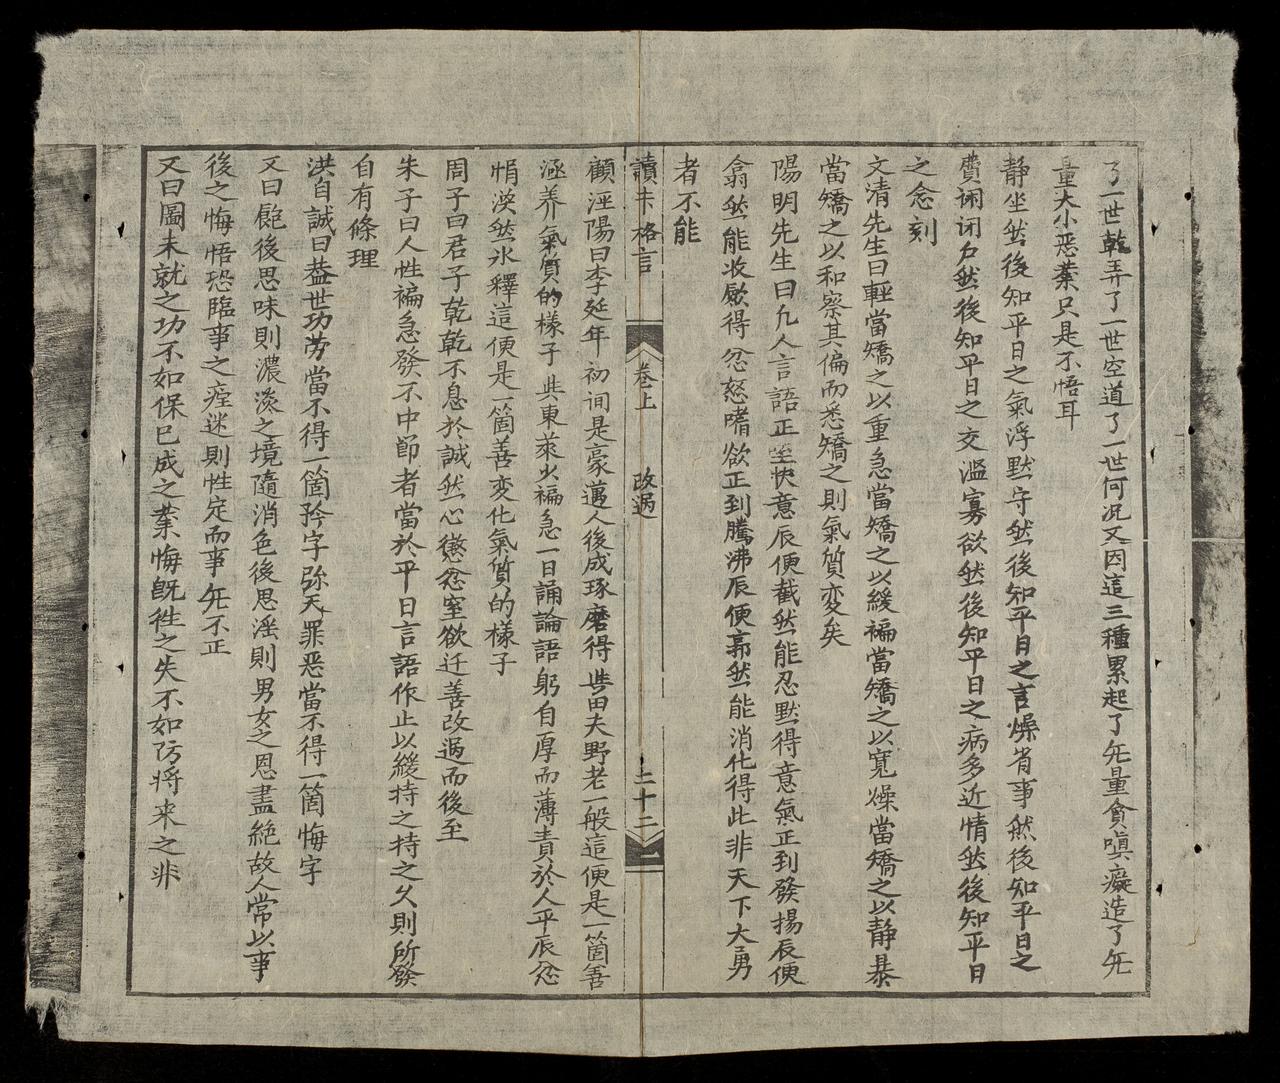 了一世乾弄了一世空道了一世何况又因這三種累起了旡量貪嗔癡造了旡
量大小惡葉只是不悟耳
静坐然後知平日之氣浮默守然後知平日之言燥省事然後知平日之
費闲闭户然後知平日之交濫寡欲然後知平日之病多近情然後知平日
之念刻
文清先生曰輕當矯之以重急當矯之以緩褊當矯之以寬燥當矯之以静暴
當矯之以和察其偏而悉矯之則氣質変矣
陽明先生曰凡人言語正至快意辰便截然能忍默得意氣正到發揚辰便
翕然能收歛得忿怒嗜欲正到騰沸辰便廓然能消化得此非天下大勇
者不能
讀未格言 卷上 改過 二十二
顧涇陽曰李延年初间是豪邁人後成琢磨得與田夫野老一般這便是一箇善
涵养氣質的樣子吕東萊火褊急一日誦論語躬自厚而薄責於人平辰忿
悁渙然氷釋這便是一箇善変化氣質的樣子
周子曰君子乾乾不息於誠然心懲忿窒欲迁善改過而後至
朱子曰人性褊急發不中節者當於平日言語作止以緩持之持之久則所發
自有條理
洪自誠曰盖世功劳當不得一箇矜字弥天罪恶當不得一箇悔字
又曰飽後思味則濃淡之境隨消色後思淫則男女之恩盡絶故人常以事
後之悔悟恐臨事之痴迷則性定而事旡不正
又曰圖未就之功不如保已成之葉悔既徃之失不如防将来之非